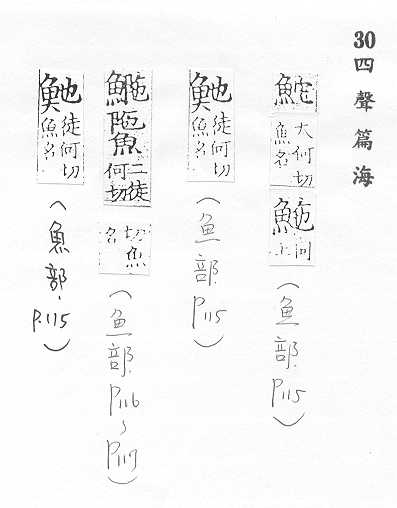 30 四聲篇海
鮀 大何切
魚名
同
上
(魚部.P115)
徒何切
魚名
(魚部.P115)
二徒
何切
切魚
名
(魚部.P116~P117)
徒何切
魚名
(魚部.P.115)